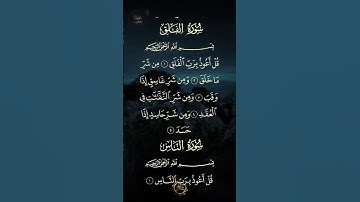 سُورَةُ الفَلَقِ
بِسْمِ اللَّهِ الرَّحْمَٰنِ الرَّحِيمِ
قُلْ أَعُوذُ بِرَبِّ الْفَلَقِ ١ مِن شَرِّ
مَا خَلَقَ ٢ وَمِن شَرِّ غَاسِقٍ إِذَا
وَقَبَ ٣ وَمِن شَرِّ النَّفَّاثَاتِ فِي
الْعُقَدِ ٤ وَمِن شَرِّ حَاسِدٍ إِذَا
حَسَدَ ٥
سُورَةُ النَّاسِ
بِسْمِ اللَّهِ الرَّحْمَٰنِ الرَّحِيمِ
قُلْ أَعُوذُ بِرَبِّ النَّاسِ ١